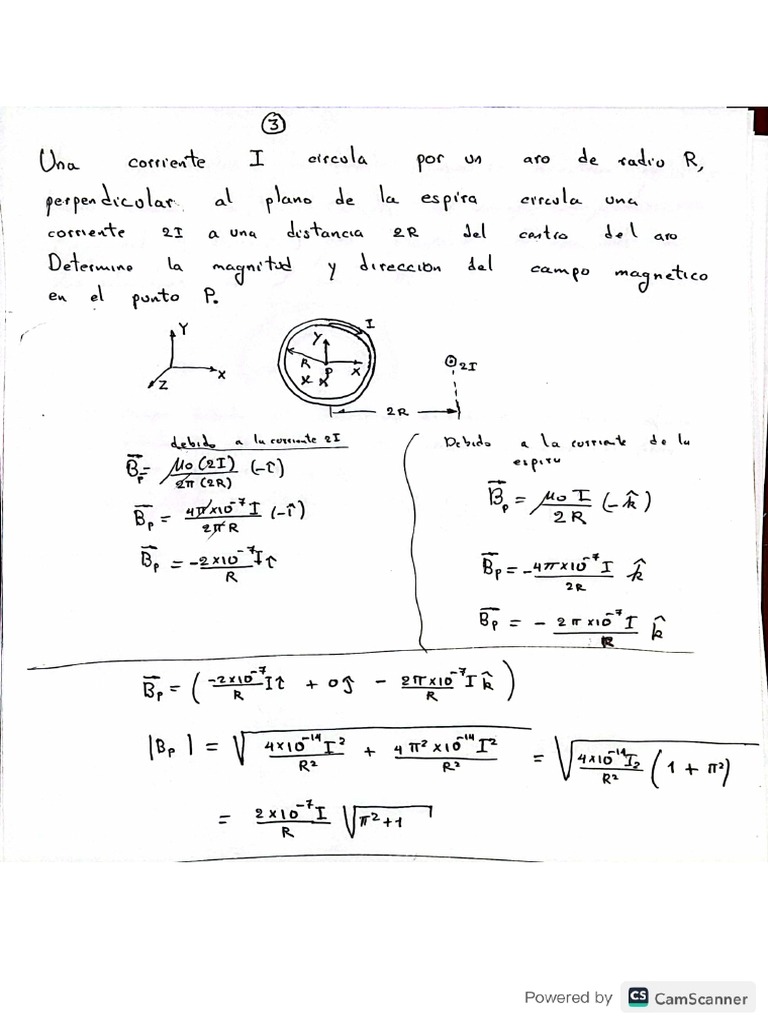 3
Una corriente I circula por un aro de radio R,
perpendicular al plano de la espira circula una
corriente 2I a una distancia 2R del centro del aro
Determine la magnitud y dirección del campo magnetico
en el punto P.
Y X Z
I Y R P X x x
2I
2R
debido a la corriente 2I
B⃗p = μo(2I)/2π(2R) (-î)
B⃗p = 4π×10⁻⁷ I/2πR (-î)
B⃗p = -2×10⁻⁷ I/R î
Debido a la corriente de la
espira
B⃗p = μo I/2R (-k̂)
B⃗p = -4π×10⁻⁷ I/2R k̂
B⃗p = - 2π×10⁻⁷ I/R k̂
B⃗p = (-2×10⁻⁷/R I î + 0ĵ - 2π×10⁻⁷/R I k̂)
|Bp| = √(4×10⁻¹⁴ I²/R² + 4π²×10⁻¹⁴ I²/R²) = √(4×10⁻¹⁴ I₂/R² (1 + π²))
= 2×10⁻⁷ I/R √(π²+1)
Powered by CS CamScanner